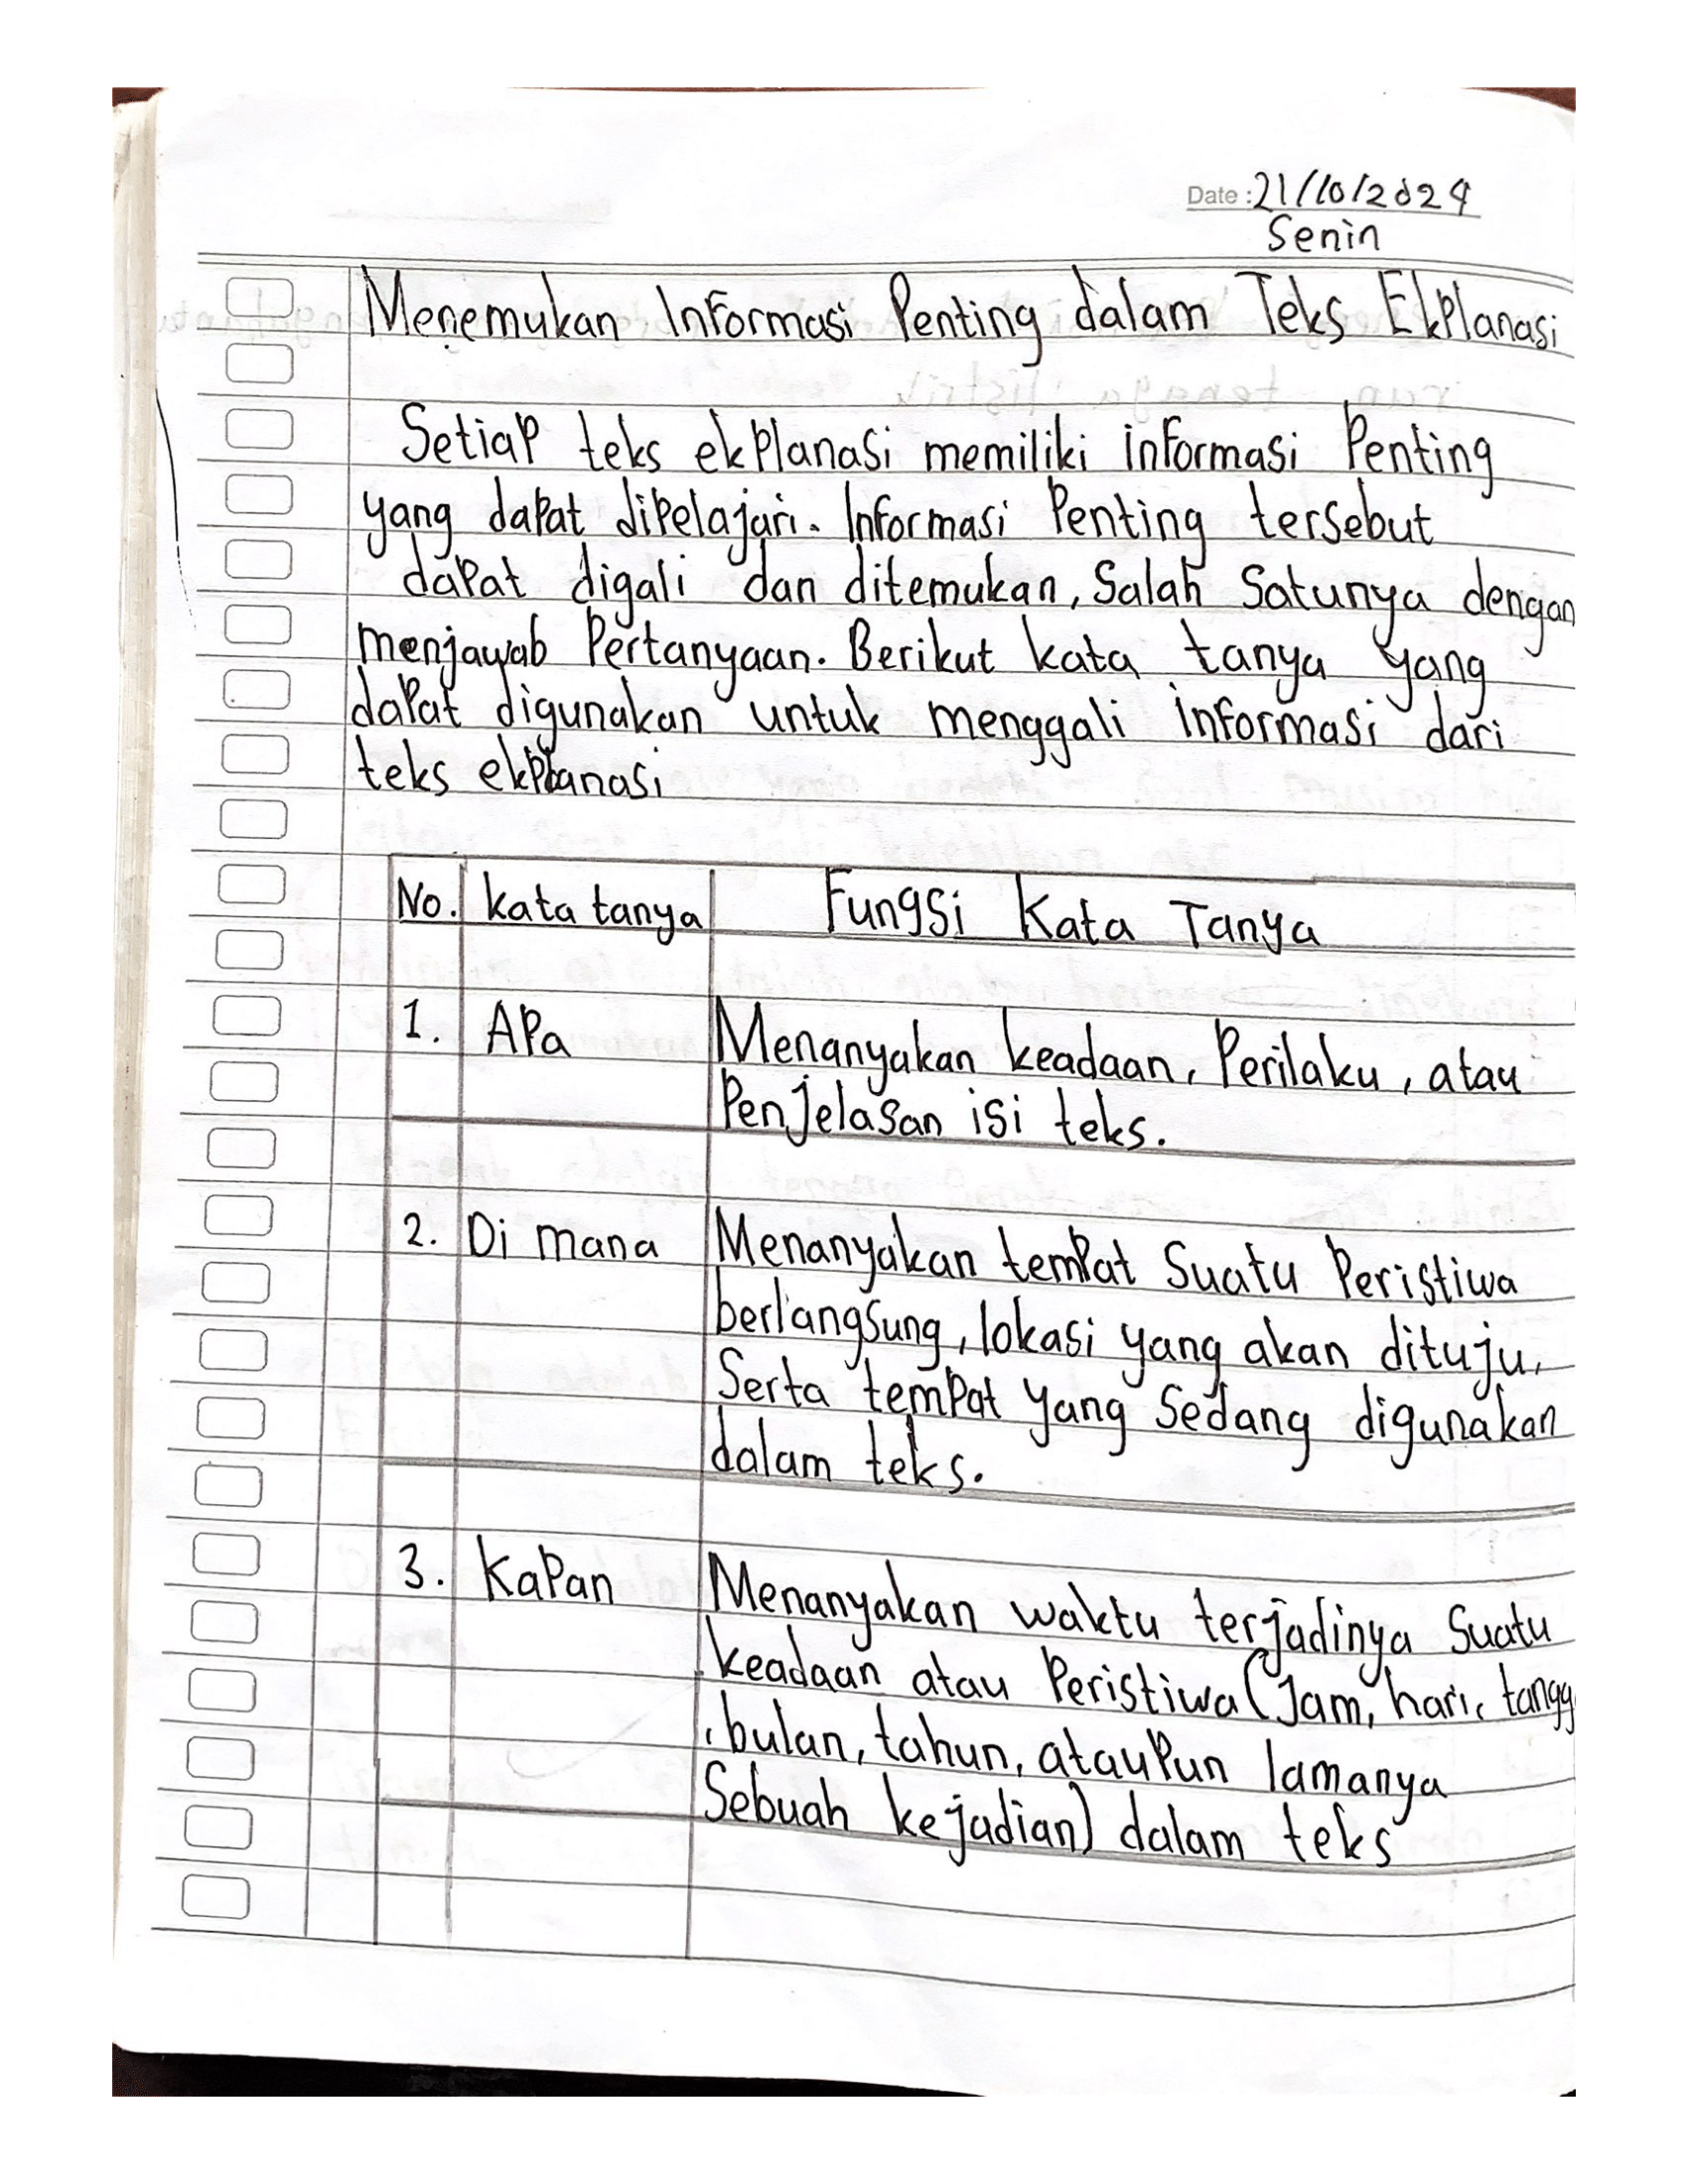 Date : 21/10/2024
Senin
Menemukan Informasi Penting dalam Teks Ekplanasi
Setiap teks ekplanasi memiliki informasi Penting
yang dapat dipelajari. Informasi Penting tersebut
dapat digali dan ditemukan, Salah Satunya dengan
menjawab Pertanyaan. Berikut kata tanya yang
dapat digunakan untuk menggali informasi dari
teks ekplanasi
No. kata tanya Fungsi Kata Tanya
1. APa Menanyakan keadaan, Perilaku, atau
Penjelasan isi teks.
2. Di mana Menanyakan tempat Suatu Peristiwa
berlangsung, lokasi yang akan dituju,
Serta tempat yang Sedang digunakan
dalam teks.
3. KaPan Menanyakan waktu terjadinya Suatu
keadaan atau Peristiwa (Jam, hari, tangg
, bulan, tahun, ataupun lamanya
Sebuah kejadian) dalam teks